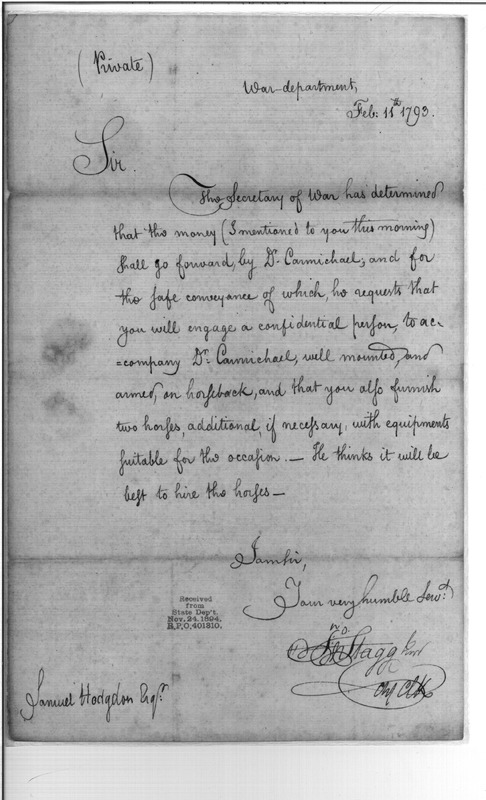 (Private)
War department,
Feb: 11th 1793.
Sir
The Secretary of War has determined
that the money (I mentioned to you this morning)
shall go forward, by Dr. Carmichael, and for
the safe conveyance of which, he requests that
you will engage a confidential person, to ac=
=company Dr. Carmichael, well mounted, and
armed, on horseback, and that you also furnish
two horses, additional, if necessary, with equipments
suitable for the occasion. — He thinks it will be
best to hire the horses —
I am sir,
Your very humble Servt.
Jn Stagg Junr
Chf Clk
Received
from
State Dep't.
Nov. 24, 1894.
R.P.O. 401810.
Samuel Hodgdon Esqr.